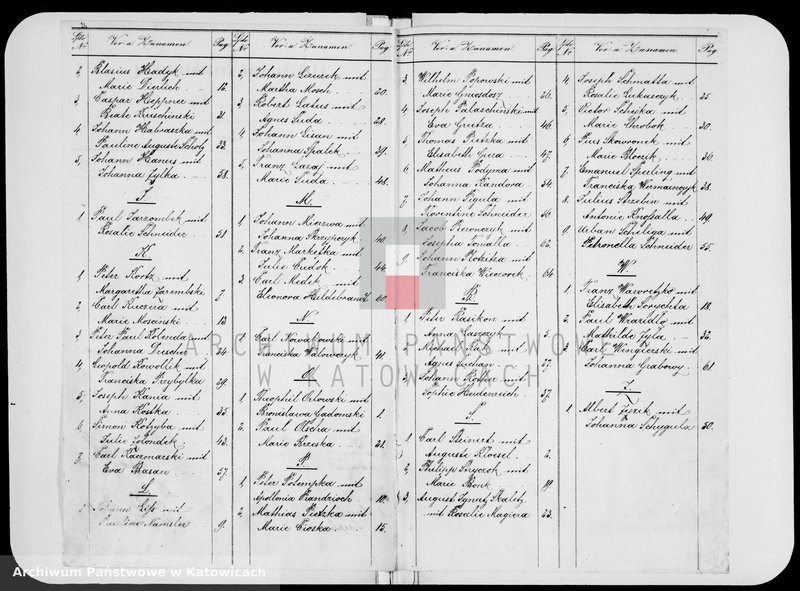 Lfde Nr. Vor- u. Zunamen Pag
2, Blasius Hadyk mit
Marie Dierlich 12.
3, Caspar Heppner mit
Beate Kruschinski 21.
4 Johann Habraschka mit
Pauline Auguste Scholz 32.
5, Johann Hanus mit
Johanna Zylka 58.
J.
1, Paul Jarzombek mit
Rosalie Schneider 51
K.
1, Peter Kortz mit
Margaretha Zarembska 7
2, Carl Kuczera mit
Marie Mosainski 12.
3, Peter Paul Kolenda mit
Johanna Duschel 24
4, Leopold Kowollik mit
Franciska Przybylka 29.
5, Joseph Kania mit
Anna Kostka 35
6, Simon Kotzyba mit
Julie Jolondek 43.
8, Carl Kaczmarski mit
Eva Basan 57.
L.
1, Johann Lip mit
Pauline Namsler 9.
Lfde Nr. Vor- u. Zunamen Pag
2, Johann Lizurek mit
Martha Mosch 20.
3, Robert Laters mit
Agnes Luda 28.
4 Johann Lisan mit
Johanna Spalek 39.
5, Franz Lazaj mit
Marie Suda 48.
M.
1, Johann Mierzwa mit
Johanna Skrzypczyk 40
2, Franz Markefka mit
Julie Cudok 44
3, Carl Medek mit
Eleonora Hildebrandt 60
N.
1 Carl Nowakowski mit
Franciska Walowczyk 41.
O.
1 Theophil Orlowski mit
Bronislawa Gadomski 1.
2, Paul Olscha mit
Marie Brzeska 21.
P.
1, Peter Polempka mit
Apollonia Piandzioch 10.
2, Mathias Pietzka mit
Marie Cioska 15.
Lfde Nr. Vor- u. Zunamen Pag
3 Wilhelm Popowski mit
Marie Gniesdosz 26.
4 Joseph Palaschinski mit
Eva Grutka 46.
5, Thomas Pietzka mit
Elisabeth Gura 47.
6 Matheus Podyma mit
Johanna Kandora 54.
7 Johann Pigula mit
Florentine Schneider 56.
8 Jacob Pieronczyk mit
Josepha Tomalla 62.
9 Johann Plotzitza mit
Franciska Wieczorek 64
R.
1 Peter Rasikon mit
Anna Gaszczyk 5.
2 Michael Rak mit
Agnes Suchan 27.
3, Johann Rother mit
Sophie Heidenreich 37.
S.
1 Carl Steinert mit
Auguste Kloesel 2.
2, Philipp Snyczok mit
Marie Bonk 19.
3, August Ignatz Skaletz
mit Rosalie Magiera 23.
Lfde Nr. Vor- u. Zunamen Pag
4 Joseph Schmatlla mit
Rosalie Lukasczyk 25.
5, Victor Schejka mit
Marie Chrobok 30.
6, Pius Skowronek mit
Marie Bloczik 36.
7, Emanuel Sperling mit
Franciska Wermainczyk 38.
8 Julius Strzebin mit
Antonie Knossalla 49.
9 Urban Scheliga mit
Petronella Schneider 55.
W.
1, Franz Wawretzko mit
Elisabeth Soruschta 18.
2, Paul Wrazidlo mit
Mathilde Zyla 32.
3, Carl Wingierski mit
Johanna Grabowy 61.
Z.
1 Albert Zyzik mit
Johanna Schygula 50.
ARCHIWUM PAŃSTWOWE
W KATOWICACH
Archiwum Państwowe w Katowicach